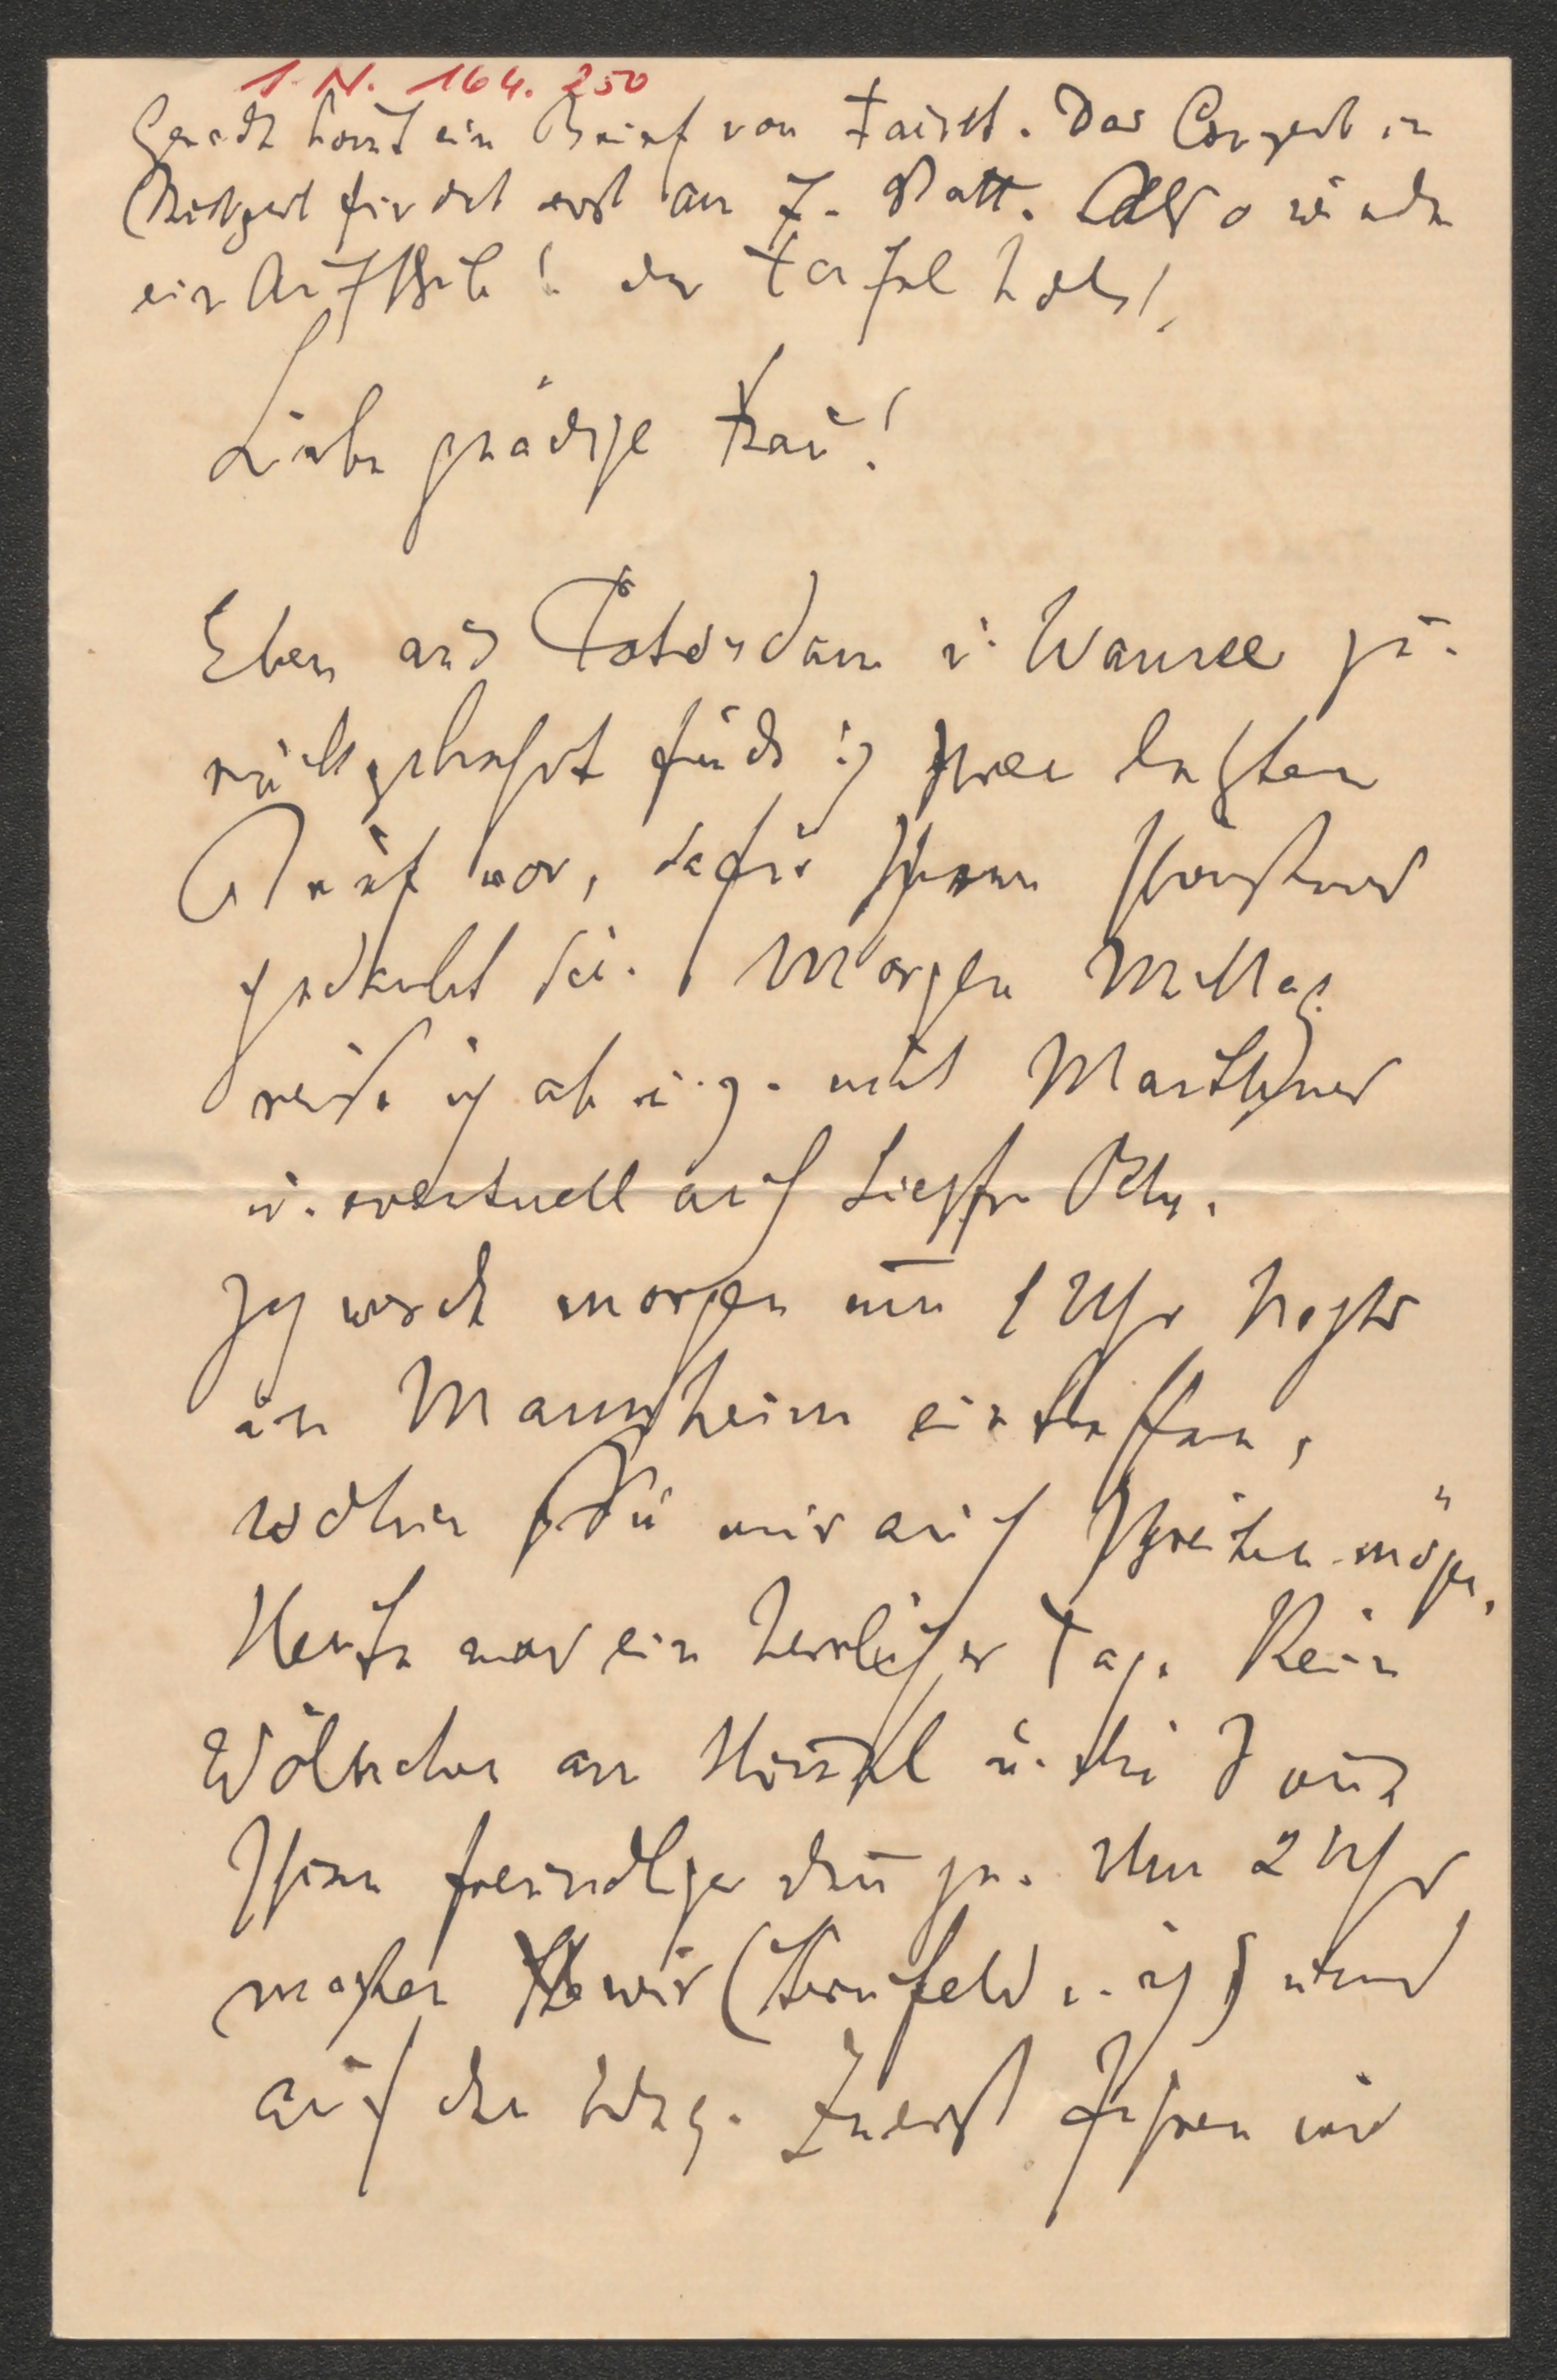 I. N. 164.250
Gerade kommt ein Brief von Faisst. Das Concert in
Stuttgart findet erst am 7. statt. Also wieder
ein Aufschub! der Teufel hol's!
Liebe gnädige Frau!
Eben aus Potsdam u. Wansee zu-
rückgekehrt finde ich Ihren letzten
Brief vor, dafür Ihnen schönstens
gedankt sei. Morgen Mittag
reise ich ab u. z. mit
u. eventuell auch Siegfr. Ochs.
Ich werde morgen um 1 Uhr Nachts
in Mannheim eintreffen,
wohin Sie mir auch schreiben mögen.
Heute war ein herrlicher Tag. Kein
Wölkchen am Himmel u. die Sonne
schien freundlich dazu. Um 2 Uhr
machten wir (Sternfeld u. ich) uns
auf den Weg. Zuerst fuhren wir